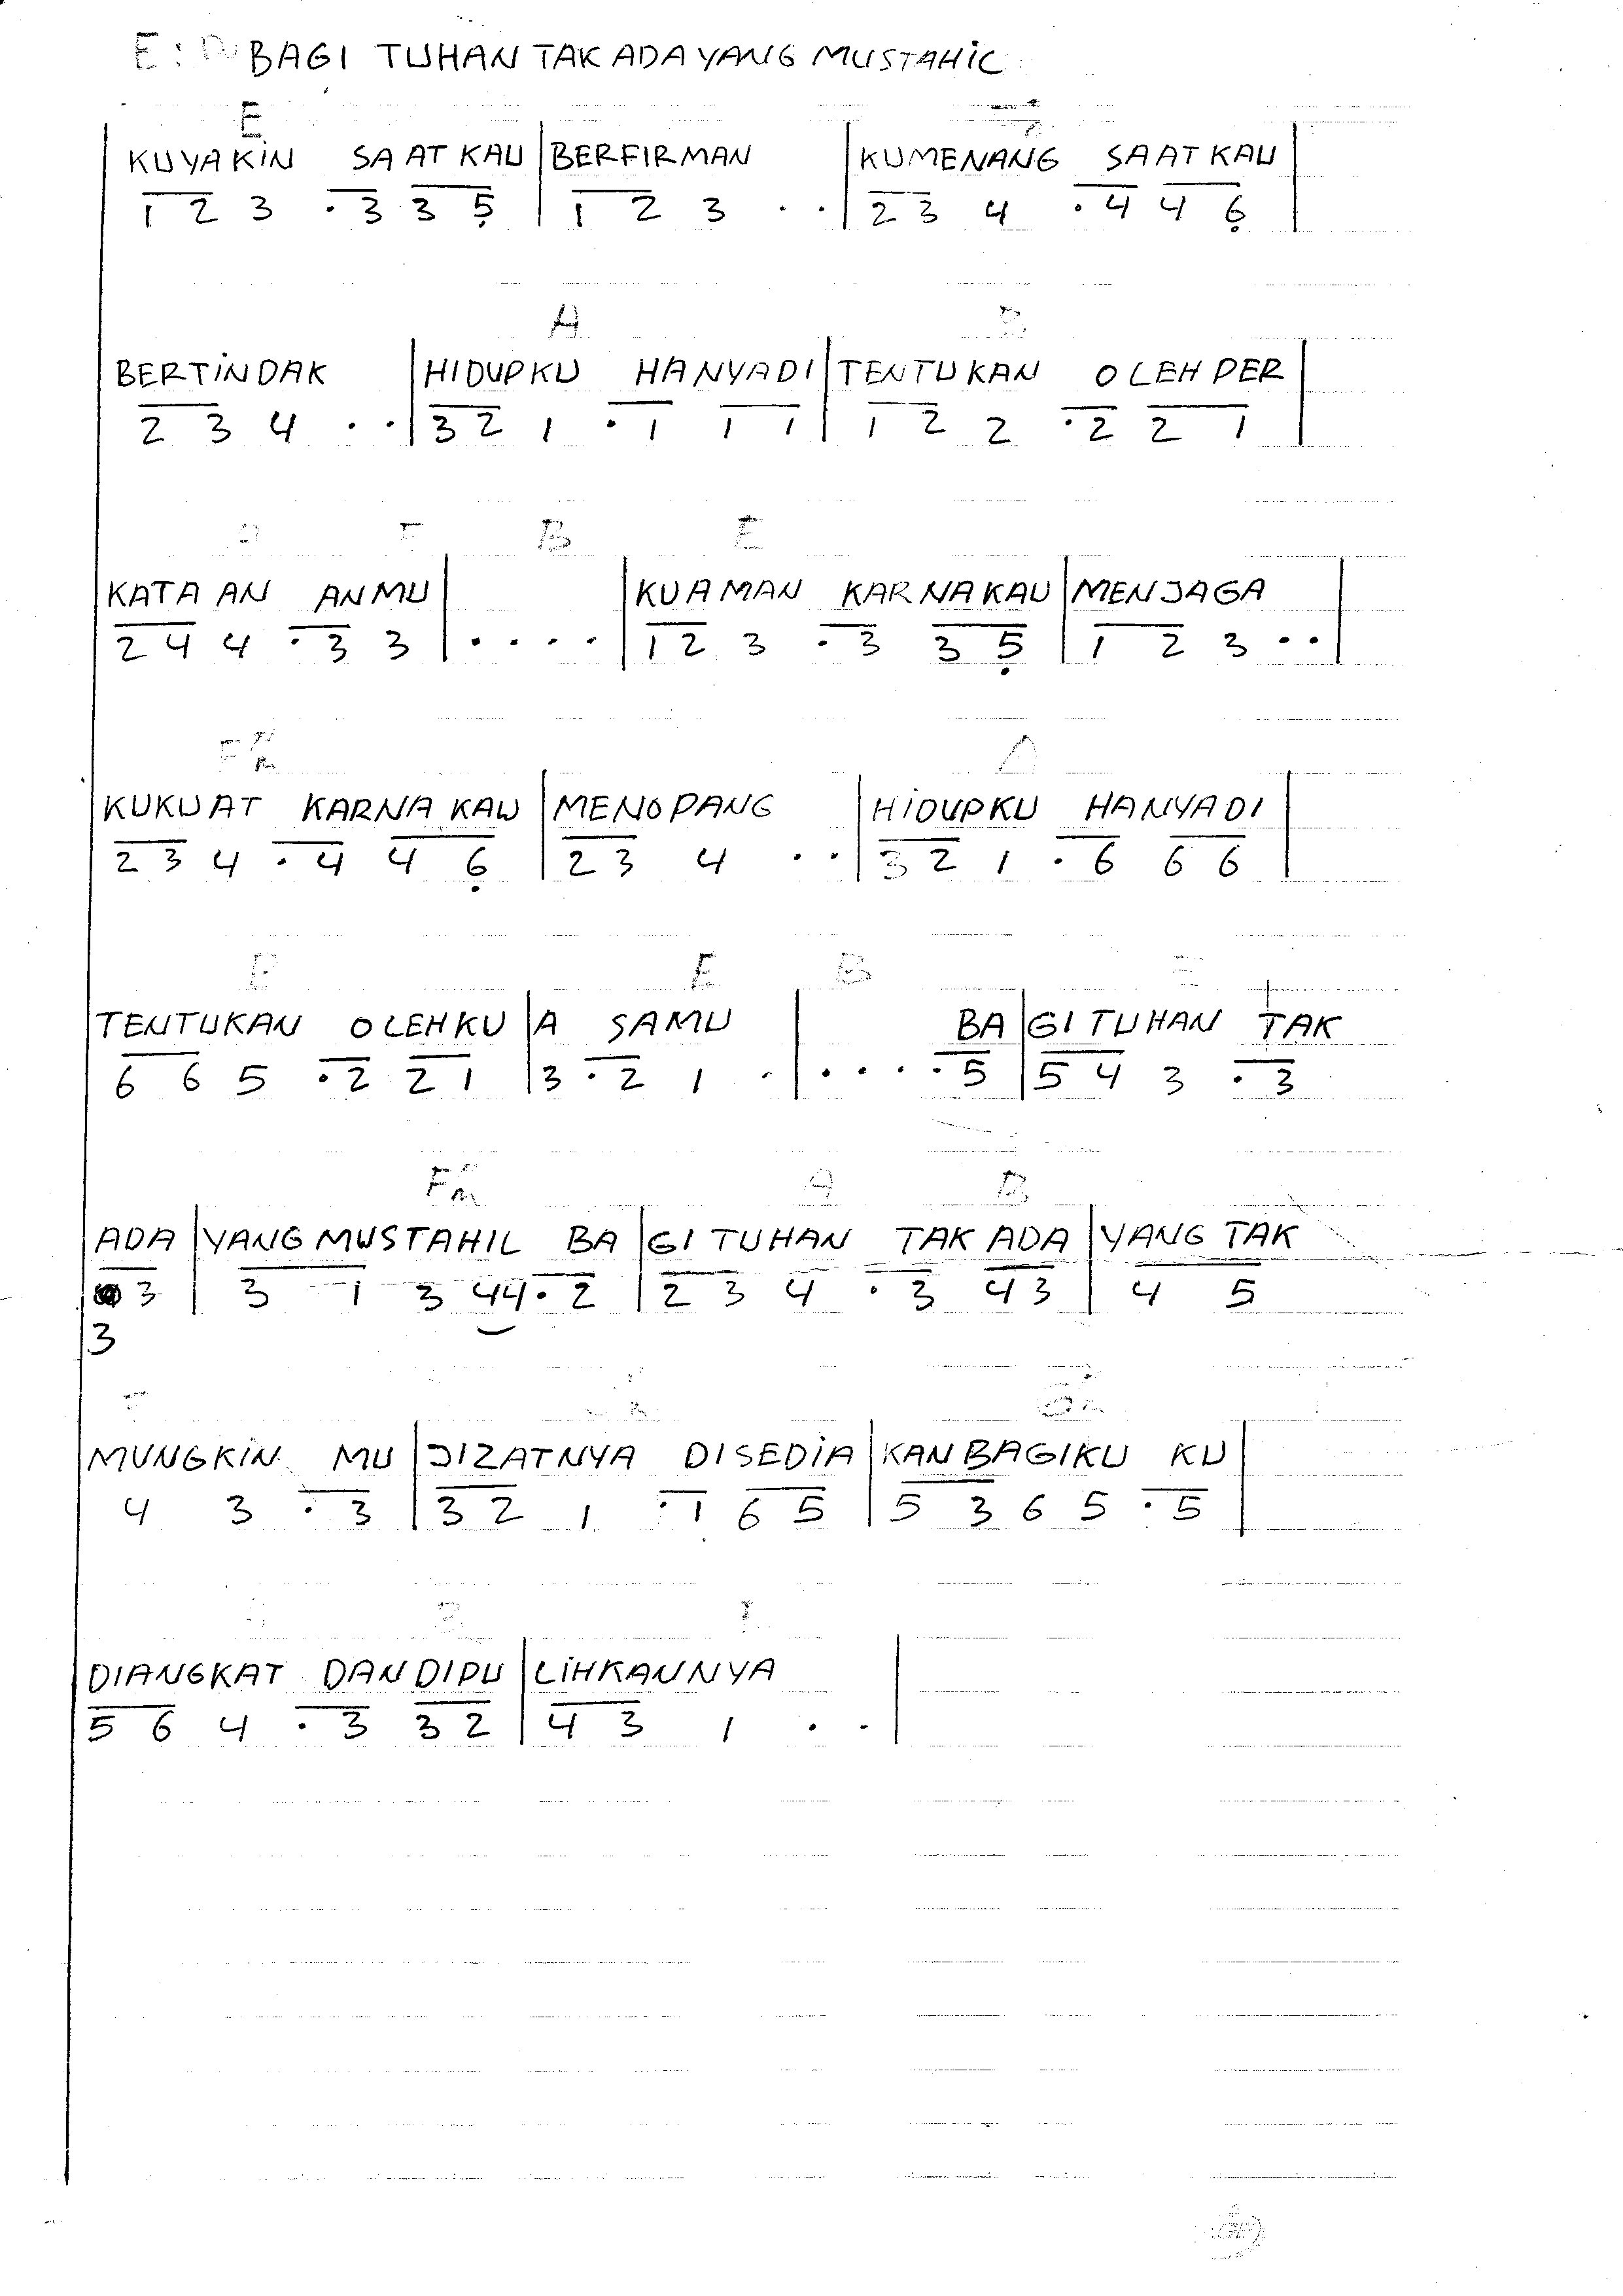 E: BAGI TUHAN TAK ADA YANG MUSTAHIL
E
KUYAKIN SAAT KAU | BERFIRMAN | KUMENANG SAAT KAU |
1 2 3 . 3 3 5̣ | 1 2 3 . . | 2 3 4 . 4 4 6̣ |
A B
BERTINDAK | HIDUPKU HANYA DI | TENTUKAN OLEH PER |
2 3 4 . . | 3 2 1 . 1 1 1 | 1 2 2 . 2 2 1 |
B E
KATA AN ANMU | | KUAMAN KARNA KAU | MENJAGA |
2 4 4 . 3 3 | . . . . | 1 2 3 . 3 3 5̣ | 1 2 3 . . |
A
KUKUAT KARNA KAU | MENOPANG | HIDUPKU HANYA DI |
2 3 4 . 4 4 6̣ | 2 3 4 . . | 3 2 1 . 6 6 6 |
E B
TENTUKAN OLEHKU | A SAMU | BA | GI TUHAN TAK
6 6 5 . 2 2 1 | 3 . 2 1 . | . . . . . 5 | 5 4 3 . 3
Fm A B
ADA | YANG MUSTAHIL BA | GI TUHAN TAK ADA | YANG TAK
3 | 3 1 3 4 4 . 2 | 2 3 4 . 3 4 3 | 4 5
3
MUNGKIN MU | JIZATNYA DISEDIA | KAN BAGIKU KU |
4 3 . 3 | 3 2 1 . 1 6 5 | 5 3 6 5 . 5 |
DIANGKAT DAN DIPU | LIHKANNYA |
5 6 4 . 3 3 2 | 4 3 1 . . |